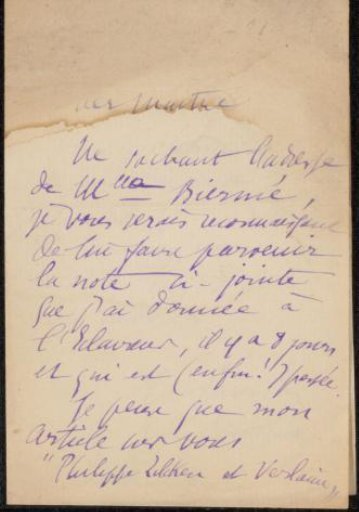 Maître
Ne sachant l'adresse
de Mlle Biermé,
je vous serais reconnaissant
de lui faire parvenir
la note ci-jointe
que j'ai donnée à
l'Eclaireur, il y a 8 jours
et qui est (enfin!) passée.
Je pense que mon
article sur vous
"Philippe Zilcken et Verlaine"